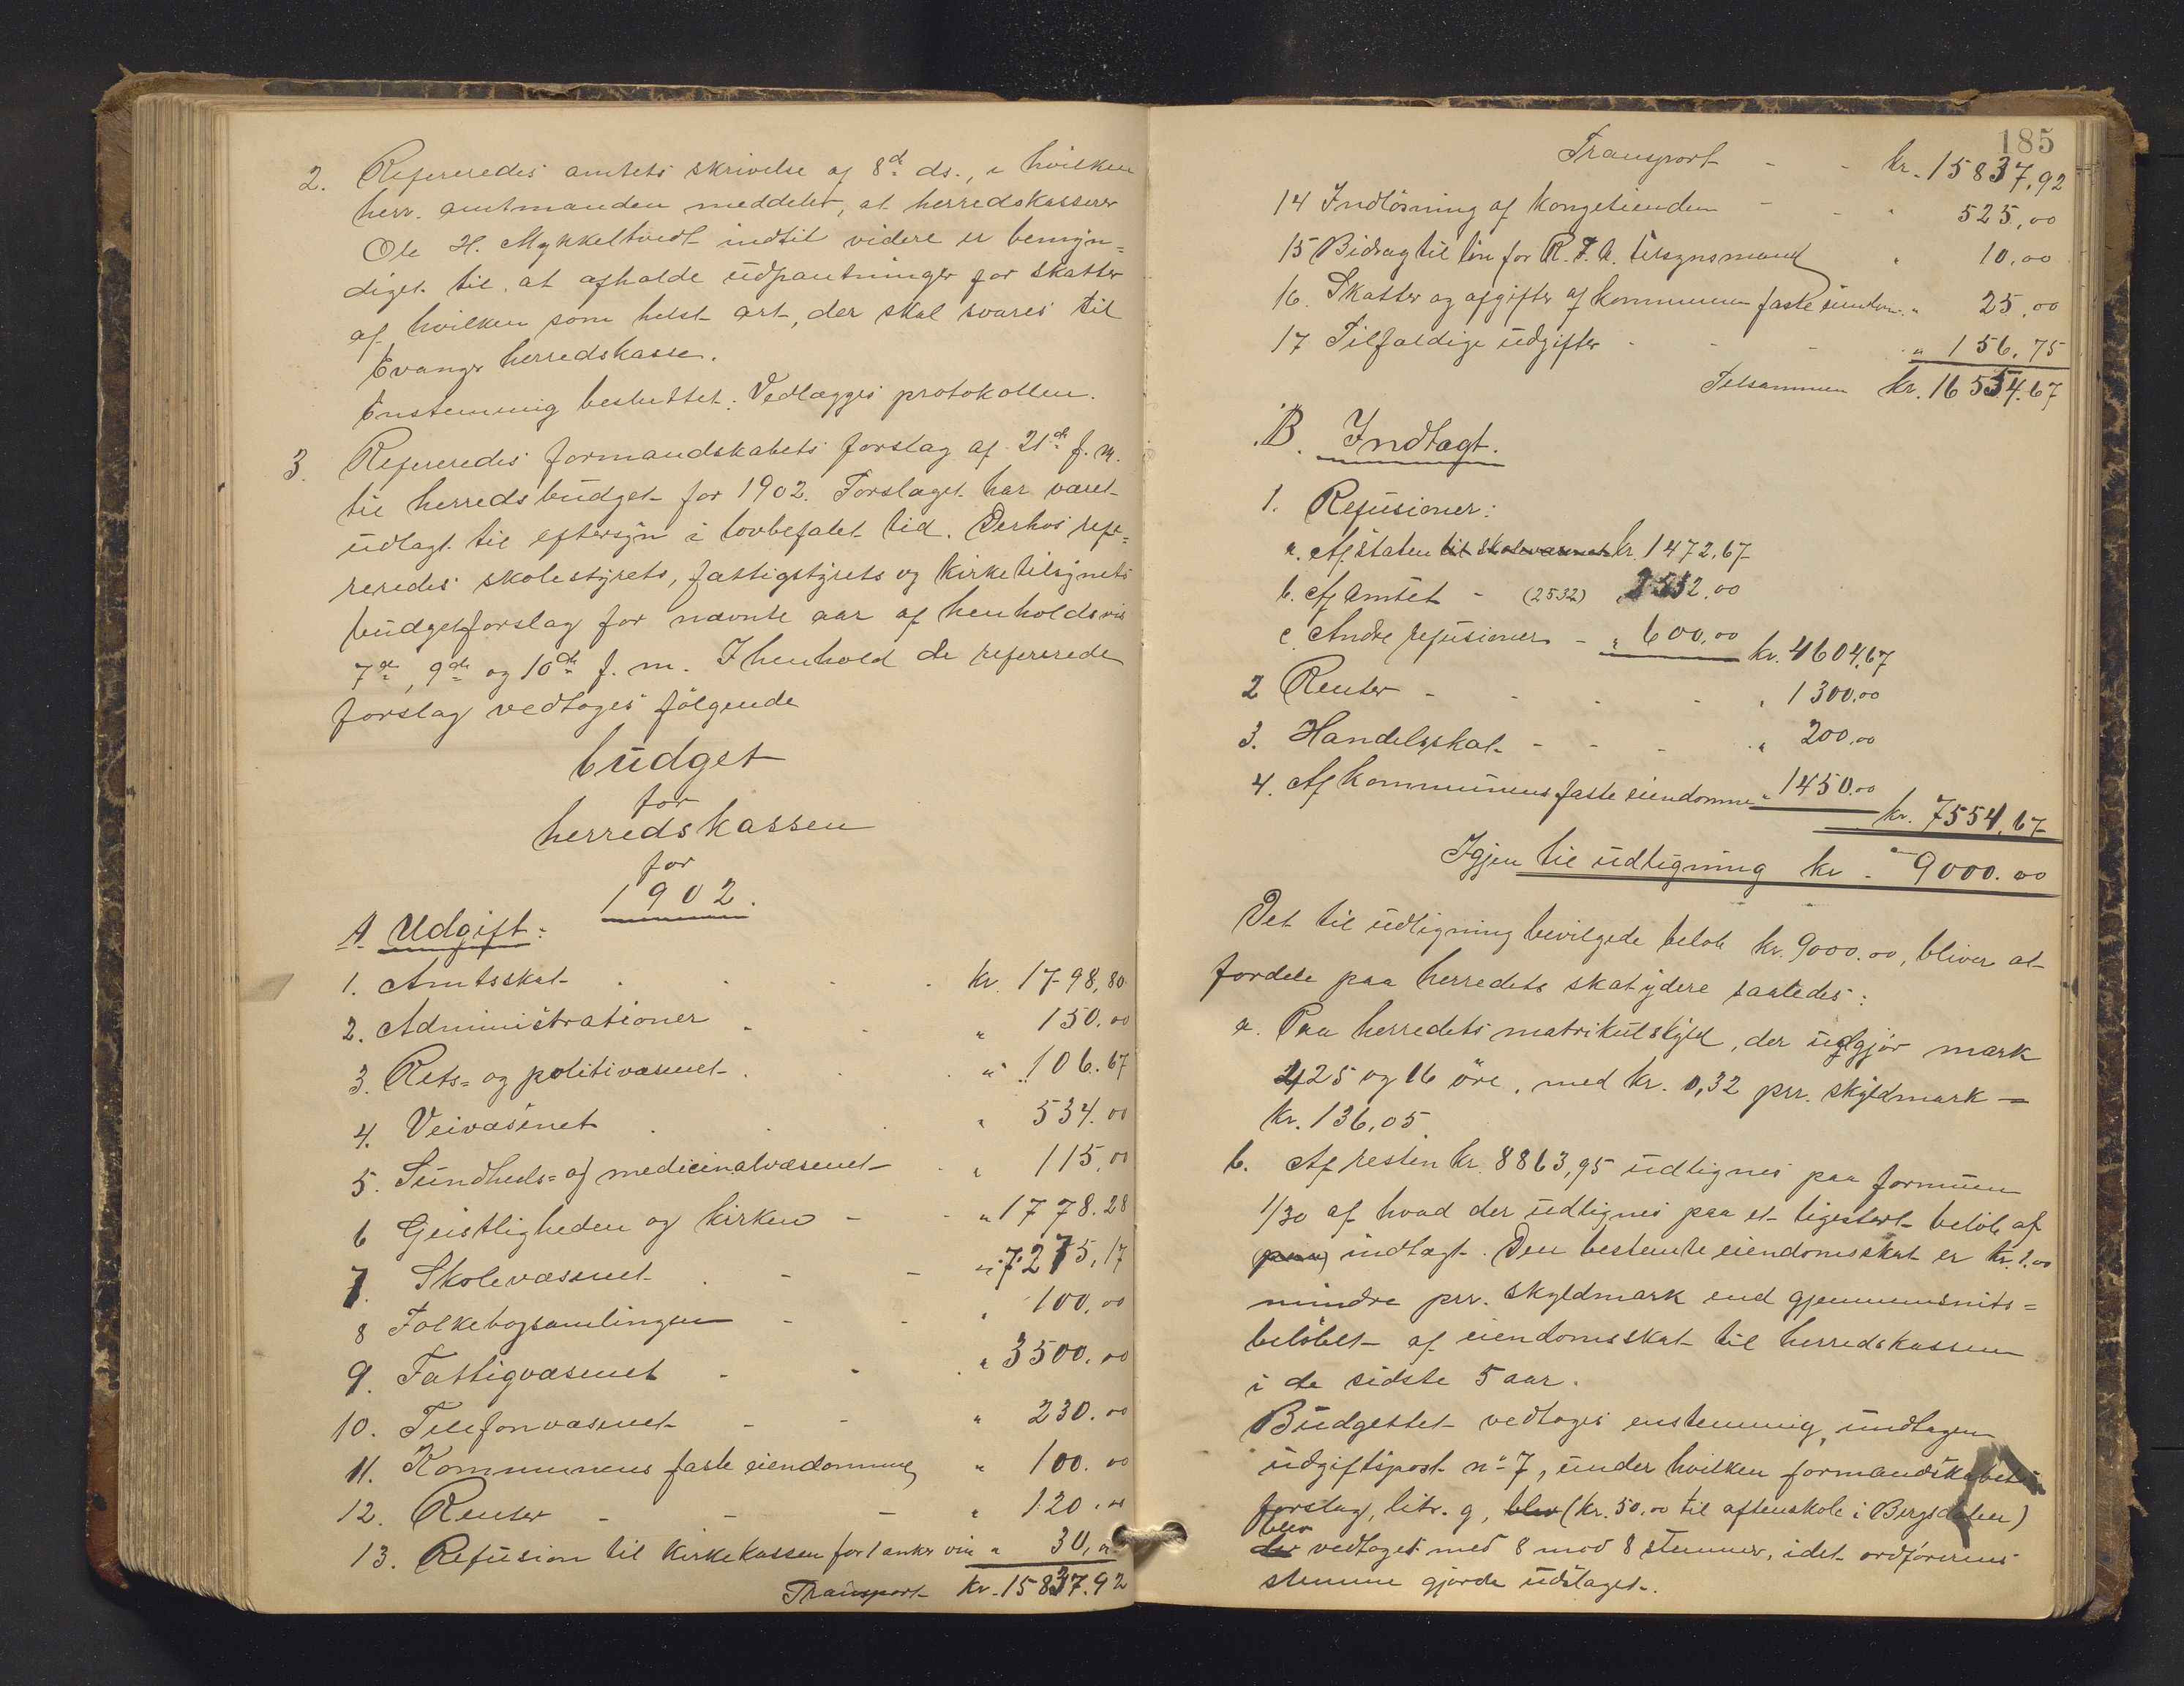 2. Refereredes amtets skrivelse af 8de ds., i hvilken
herr. amtmanden meddeler, at herredskasserer
Ole H. Mykkeltvedt indtil videre er bemyn=
diget til at afholde udpantninger for skatter
af hvilken som helst art, der skal svares til
Evanger herredskasse.
Enstemmig besluttet: Vedlægges protokollen.
3. Refereredes formandskabets forslag af 21de f. m.
til herredsbudget for 1902. Forslaget har været
udlagt til eftersyn i lovbefalet tid. Derhos refe=
reredes skolestyrets, fattigstyrets og kirketilsynets
budgetforslag for nævnte aar af henholdsvis
7de, 9de og 10de f. m. I henhold de refererede
forslag vedtoges følgende
budget
for
herredskassen
for
1902.
A Udgift:
1. Amtsskat kr. 1798,80
2. Administrationer " 150.00
3. Rets= og politivæsenet " 106.67
4. Veivæsenet " 534.00
5. Sundheds= og medicinalvæsenet " 115,00
6 Geistligheden og kirken " 1778.28
7. Skolevæsenet " 7275,17
8 Folkebogsamlingen " 100,00
9. Fattigvæsenet " 3500.00
10. Telefonvæsenet " 230.00
11. Kommunens faste eiendomme " 100.00
12. Renter " 120.00
13. Refusion til kirkekassen for 1 anker vin " 30,00
Transport kr. 15837.92
185
Transport kr. 15837,92
14 Indløsning af kongetienden " 525,00
15 Bidrag til løn for R. F. A. tilsynsmand " 10,00
16. Skatter og afgifter af kommunens faste eiendom. " 25,00
17 Tilfældige udgifter " 156,75
Tilsammen kr. 16554.67
B. Indtægt.
1. Refusioner:
a. Af staten til skolevæsenet kr. 1472,67
b. Af Amtet - (2532) 2532.00
c. Andre refusioner - " 600,00 kr. 4604,67
2 Renter " 1300,00
3. Handelsskat " 200,00
4. Af kommunens faste eiendomme " 1450.00
kr. 7554,67
Igjen til udligning kr. 9000.00
Det til udligning bevilgede beløb kr. 9000.00, bliver at
fordele paa herredets skatydere saaledes:
a. Paa herredets matrikulskyld, der udgjør mark
425 og 16 øre, med kr. 0,32 prr. skyldmark =
kr. 136,05
b. Af resten kr. 8863,95 udlignes paa formuen
1/30 af hvad der udlignes paa et ligestort beløb af
paa indtægt. Den bestemte eiendomsskat er kr. 1.00
mindre prr. skyldmark end gjennemsnits=
beløbet af eiendomsskat til herredskassen
i de sidste 5 aar.
Budgettet vedtoges enstemmig, undtagen
udgiftspost no 7, under hvilken formandskabets
forslag, litr. g, blev (kr. 50.00 til aftenskole i Bergsdalen)
blev
der vedtaget med 8 mod 8 stemmer, idet ordførerens
stemme gjorde udslaget.